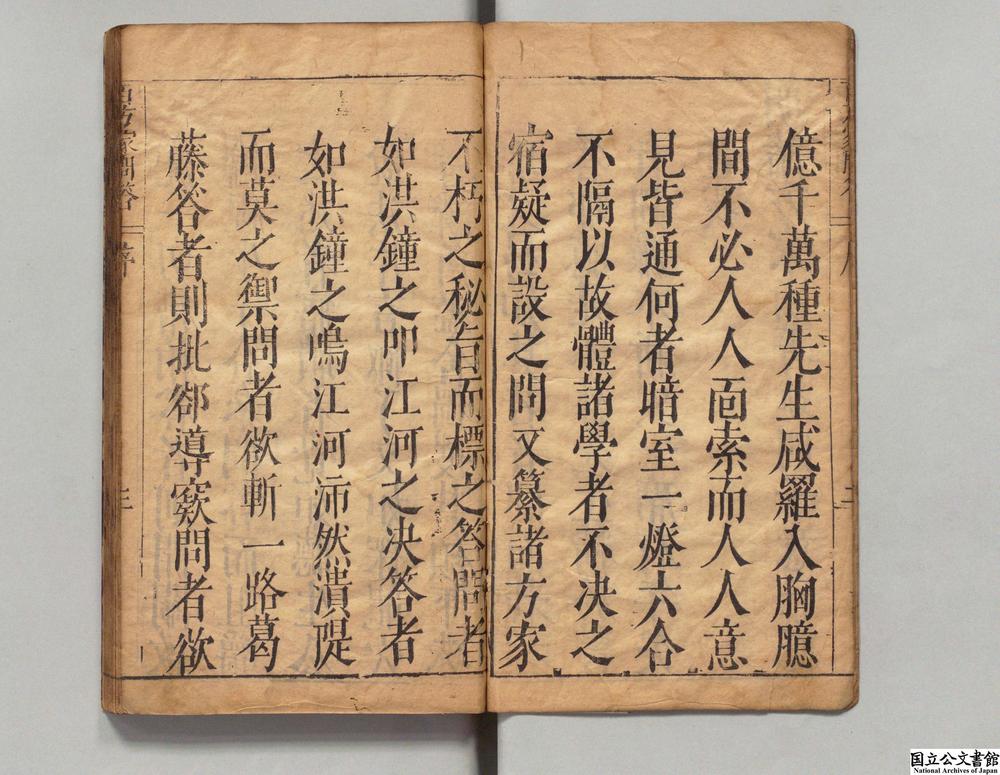 億千萬種先生咸羅入胸臆
間不必人人面索而人人意
見皆通何者暗室一燈六合
不隔以故體諸學者不决之
宿疑而設之問又纂諸方家
不朽之秘旨而標之答問者
如洪鐘之叩江河之决答者
如洪鐘之鳴江河沛然潰隄
而莫之禦問者欲斬一路葛
藤答者則批郤導窾問者欲
家問答
序
三
国立公文書館
National Archives of Japan